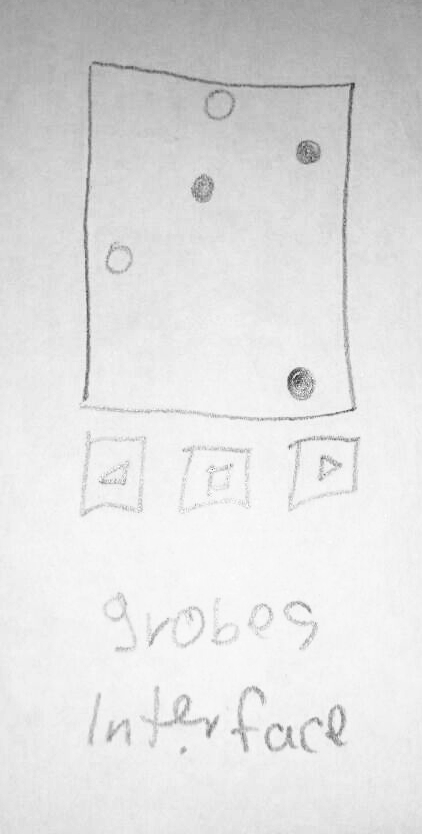 grobes
Interface